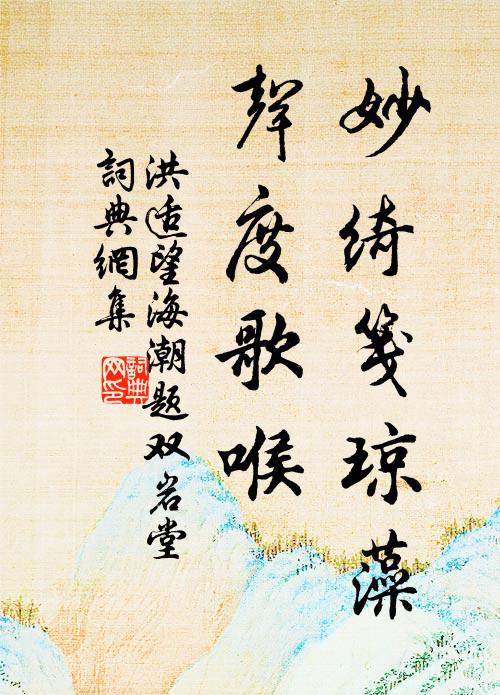 妙綺箋琼藻
聲度歌喉
洪适望海潮题双岩堂
詞典網集
詞典网印